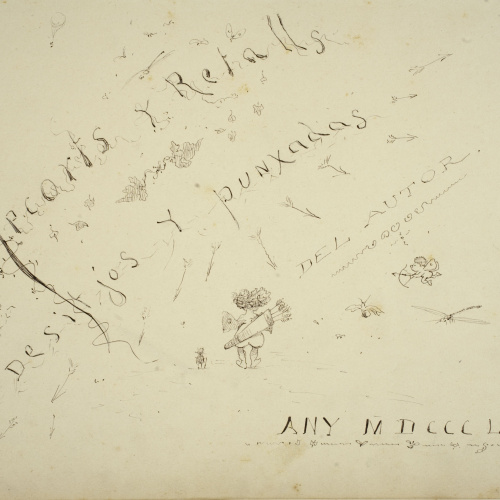 Recorts Y Retalls
Desitjos Y punxadas
DEL AUTOR.
ANY MDCCCL